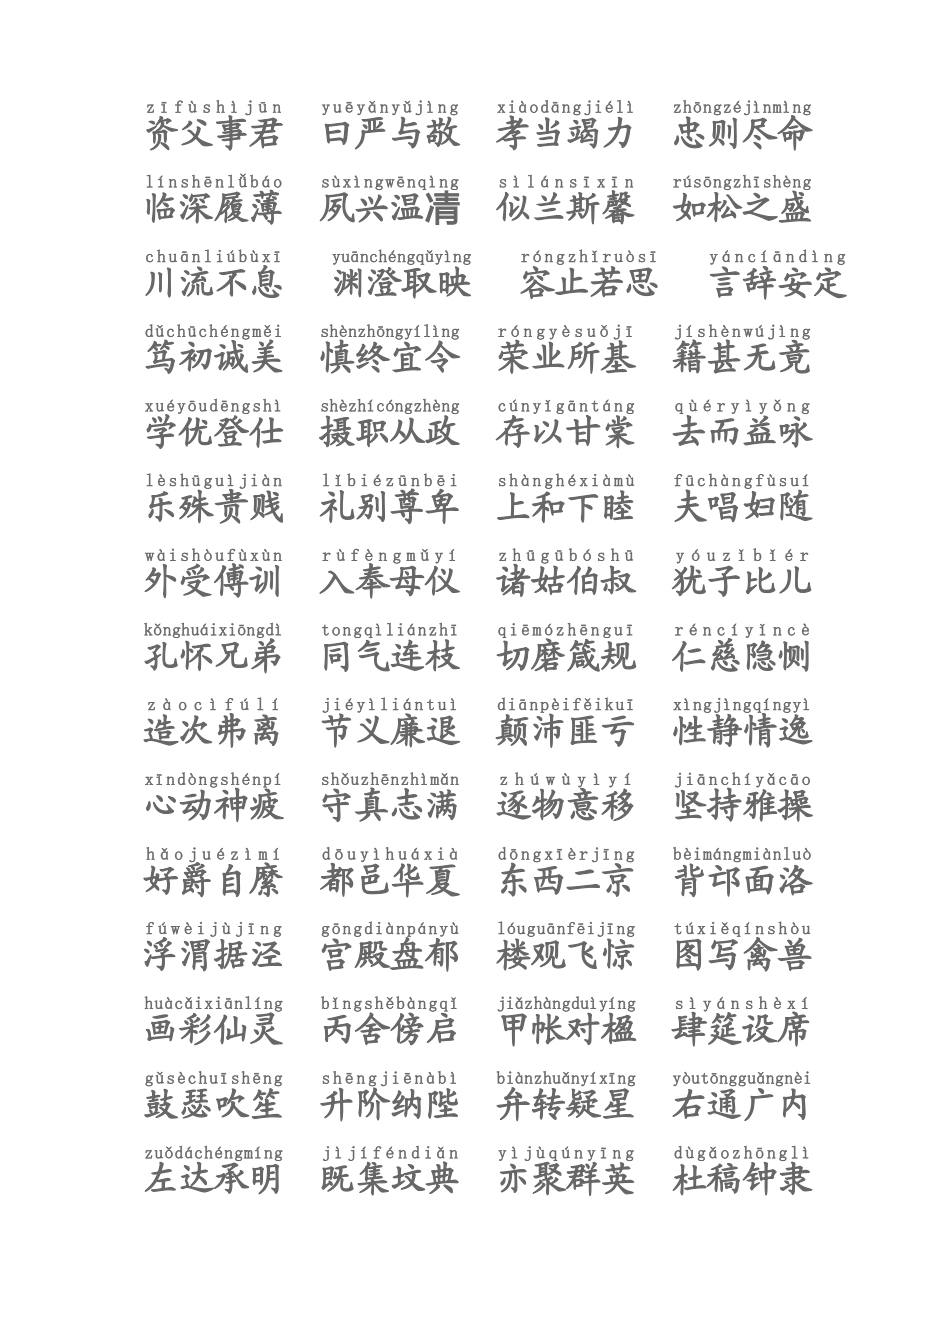 zīfùshìjūn yuēyǎnyǔjìng xiàodāngjiélì zhōngzéjìnmìng
资父事君 曰严与敬 孝当竭力 忠则尽命
línshēnlǚbáo sùxìngwēnqìng sìlánsīxīn rúsōngzhīshèng
临深履薄 夙兴温凊 似兰斯馨 如松之盛
chuānliúbùxī yuānchéngqǔyìng róngzhǐruòsī yáncíāndìng
川流不息 渊澄取映 容止若思 言辞安定
dǔchūchéngměi shènzhōngyílìng róngyèsuǒjī jíshènwújìng
笃初诚美 慎终宜令 荣业所基 籍甚无竟
xuéyōudēngshì shèzhícóngzhèng cúnyǐgāntáng qùéryìyǒng
学优登仕 摄职从政 存以甘棠 去而益咏
lèshūguìjiàn lǐbiézūnbēi shànghéxiàmù fūchàngfùsuí
乐殊贵贱 礼别尊卑 上和下睦 夫唱妇随
wàishòufùxùn rùfèngmǔyí zhūgūbóshū yóuzǐbǐér
外受傅训 入奉母仪 诸姑伯叔 犹子比儿
kǒnghuáixiōngdì tongqìliánzhī qiēmózhēnguī réncíyǐncè
孔怀兄弟 同气连枝 切磨箴规 仁慈隐恻
zàocìfúlí jiéyìliántuì diānpèifěikuī xìngjìngqíngyì
造次弗离 节义廉退 颠沛匪亏 性静情逸
xīndòngshénpí shǒuzhēnzhìmǎn zhúwùyìyí jiānchíyǎcāo
心动神疲 守真志满 逐物意移 坚持雅操
hǎojuézìmí dōuyìhuáxià dōngxīèrjīng bèimángmiànluò
好爵自縻 都邑华夏 东西二京 背邙面洛
fúwèijùjīng gōngdiànpányù lóuguānfēijīng túxiěqínshòu
浮渭据泾 宫殿盘郁 楼观飞惊 图写禽兽
huàcǎixiānlíng bǐngshěbàngqǐ jiǎzhàngduìyíng sìyánshèxí
画彩仙灵 丙舍傍启 甲帐对楹 肆筵设席
gǔsèchuīshēng shēngjiēnàbì biànzhuǎnyíxīng yòutōngguǎngnèi
鼓瑟吹笙 升阶纳陛 弁转疑星 右通广内
zuǒdáchéngmíng jìjíféndiǎn yìjùqúnyīng dùgǎozhōnglì
左达承明 既集坟典 亦聚群英 杜稿钟隶